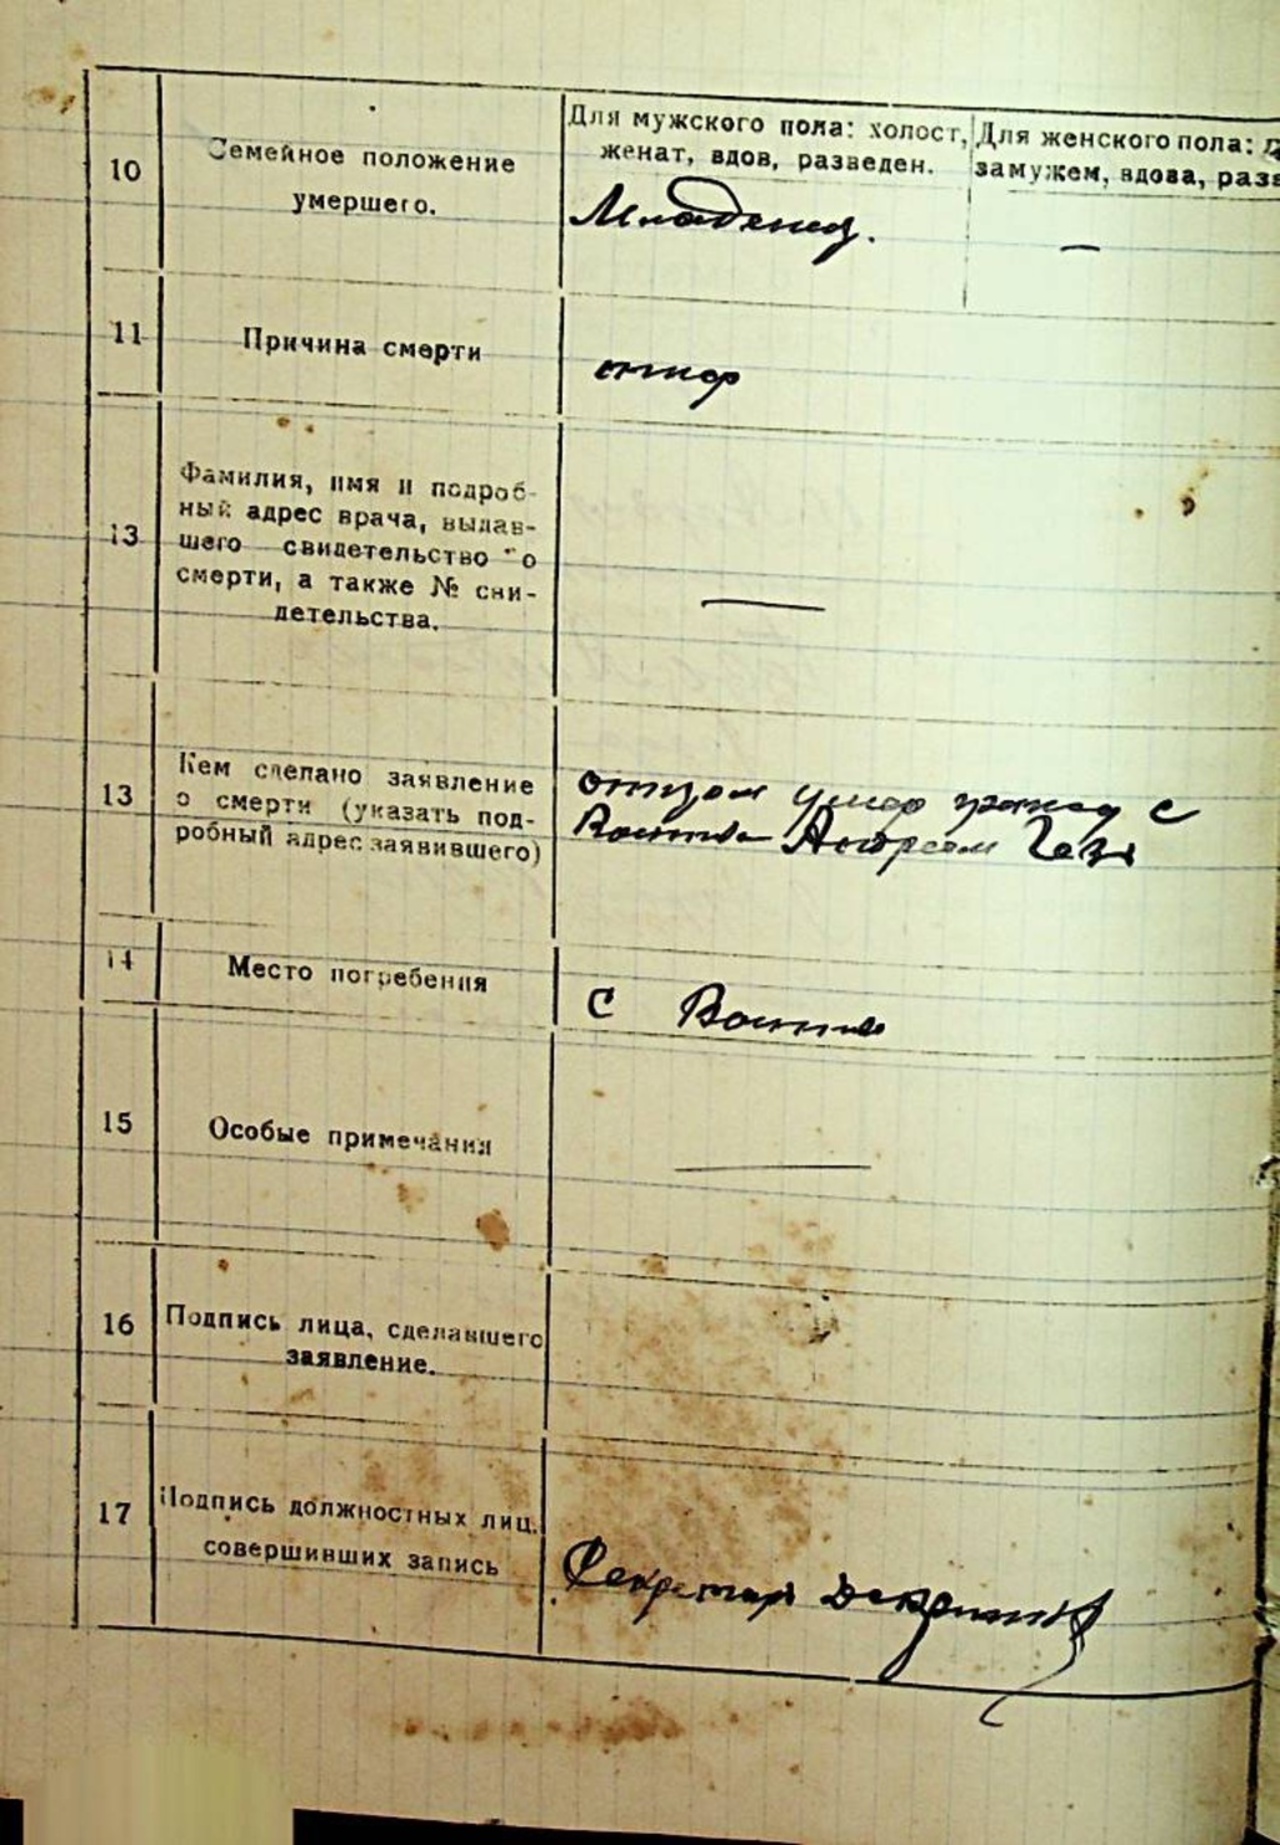 10
Семейное положение
умершего.
Для мужского пола: холост,
женат, вдов, разведен.
Для женского пола:
замужем, вдова, разв
Младенец.
—
11
Причина смерти
13
Фамилия, имя и подроб-
ный адрес врача, выдав-
шего свидетельство о
смерти, а также № сви-
детельства.
—
13
Кем сделано заявление
о смерти (указать под-
робный адрес заявившего)
отцом с
Андреем
14
Место погребения
С
15
Особые примечания
—
16
Подпись лица, сделавшего
заявление.
17
Подпись должностных лиц,
совершивших запись
Секретарь